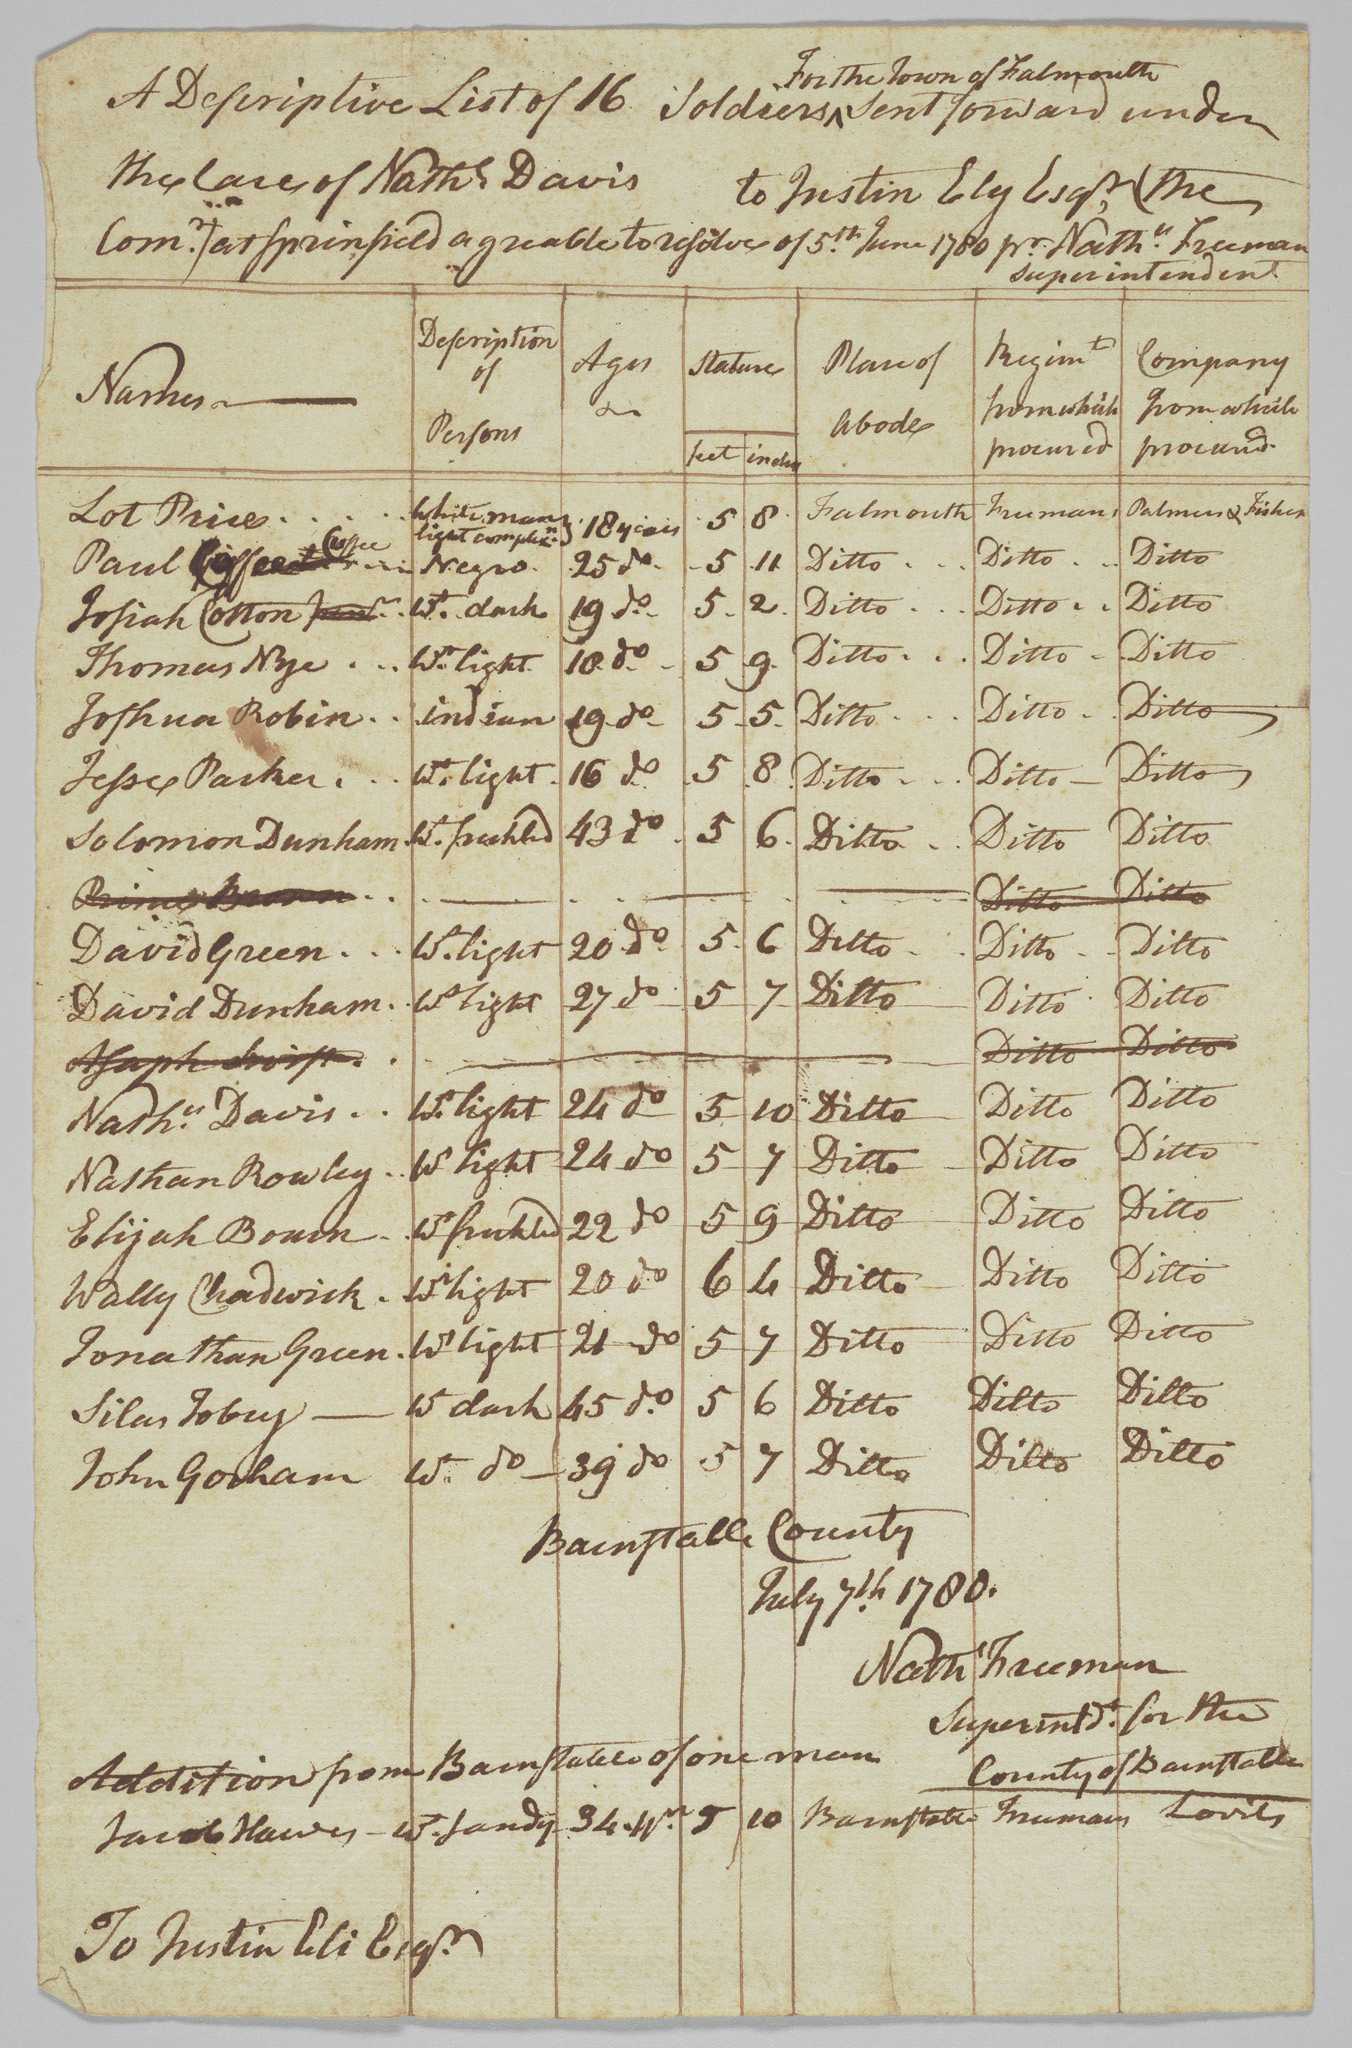 For the Town of Falmouth
A Descriptive List of 16 Soldiers ^ Sent forward under
the Care of Nathl Davis to Justin Ely Esqr, (the
Comr.) at Sprinfield agreable to resolve of 5.th June 1780 pr. Nathll Freeman
Superintendent
Names Description of Persons Ages Stature Place of abode Regimt from which procured Company from which procured
feet inches
Lot Price..... white man light complexn 18 years 5 8 Falmouth Freemans Palmers & Fishes
Paul Cuffee Cuffee Negro. 25 do 5 11 Ditto Ditto Ditto
Josiah Cotton Wt. dark 19 do 5 2 Ditto Ditto Ditto
Thomas Nye Wt. light 18 do 5 9 Ditto Ditto Ditto
Joshua Robin indian 19 do 5 5 Ditto Ditto Ditto
Jesse Parker Wt. light 16 do 5 8 Ditto Ditto Ditto
Solomon Dunham Wt. freckled 43 do 5 6 Ditto Ditto Ditto
Prince Brown Ditto Ditto
David Green Wt. light 20 do 5 6 Ditto Ditto Ditto
David Dunham Wt light 27 do 5 7 Ditto Ditto Ditto
Asaph Swift Ditto Ditto
Nathll Davis Wt. light 24 do 5 10 Ditto Ditto Ditto
Nathan Rowley Wt light 24 do 5 7 Ditto Ditto Ditto
Elijah Bourn Wt freckled 22 do 5 9 Ditto Ditto Ditto
Wally Chadwick Wt light 20 do 6 4 Ditto Ditto Ditto
Jonathan Green Wt light 21 do 5 7 Ditto Ditto Ditto
Silas Tobey W dark 45 do 5 6 Ditto Ditto Ditto
John Gorham Wt. do 39 do 5 7 Ditto Ditto Ditto
Barnstable County
July 7th 1780.
Nathl Freeman
Superintdt. for the
County of Barnstable
Addition from Barnstable of one man
Jacob Hawes Wt. Sandy 34 yrs 5 10 Barnstable Freemans Lovels
To Justin Eli Esqr.